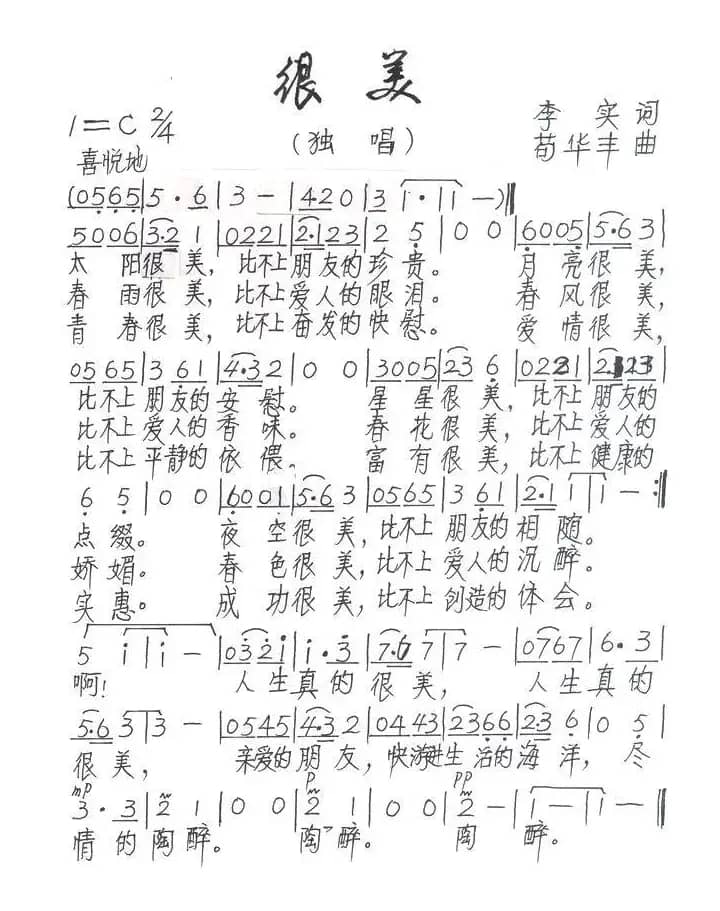 很 美
1=C 2/4
（独 唱）
李 实 词
苟华丰 曲
喜悦地
(0565|5·6|3 —|420|3 i·|i i —)‖
5006|3·2 1|0221|2·123|2 5|0 0|6005|5·6 3|
太 阳很 美，比不上朋友的珍 贵。 月 亮很 美，
春 雨很 美，比不上爱人的眼 泪。 春 风很 美，
青 春很 美，比不上奋发的快 慰。 爱 情很 美，
0565|3 61|4·3 2|0 0|3005|23 6|0221|2·123|
比不上 朋友的 安 慰。 星 星很 美，比不上 朋友的
比不上 爱人的 香 味。 春 花很 美，比不上 爱人的
比不上 平静的 依 偎。 富 有很 美，比不上 健康的
6 5|0 0|6001|5·6 3|0565|3 61|2·1 i|i —:‖
点 缀。 夜 空很 美，比不上 朋友的 相 随。
娇 媚。 春 色很 美，比不上 爱人的 沉 醉。
实 惠。 成 功很 美，比不上 创造的 体 会。
5 i|i —|032i|i·3|7·6 7|7 —|0767|6·3|
啊！ 人生真的 很 美， 人生真的
5·6 3|3 —|0545|4·3 2|0443|2366|2·3 6|0 5|
很 美， 亲爱的 朋 友，快游进生活的海 洋，尽
mp p pp
3·3|2 1|0 0|2 1|0 0|2 —|1 —|1 —‖
情 的 陶 醉。 陶 醉。 陶 醉。